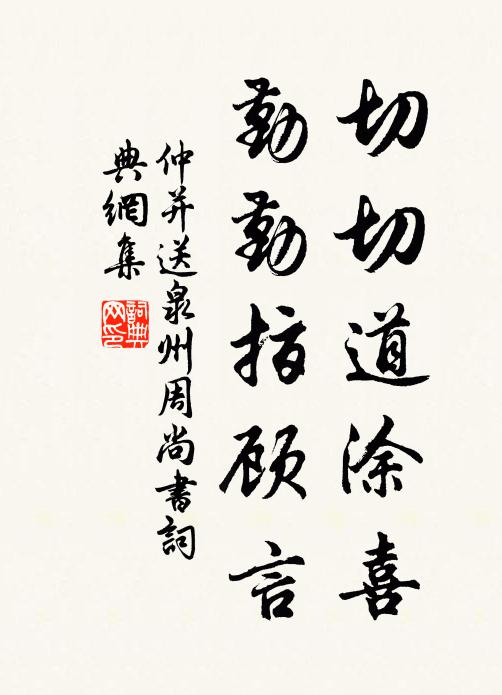 切切道涂喜
勤勤指顾言
仲并送泉州周尚書詞
典網集
詞典
网印